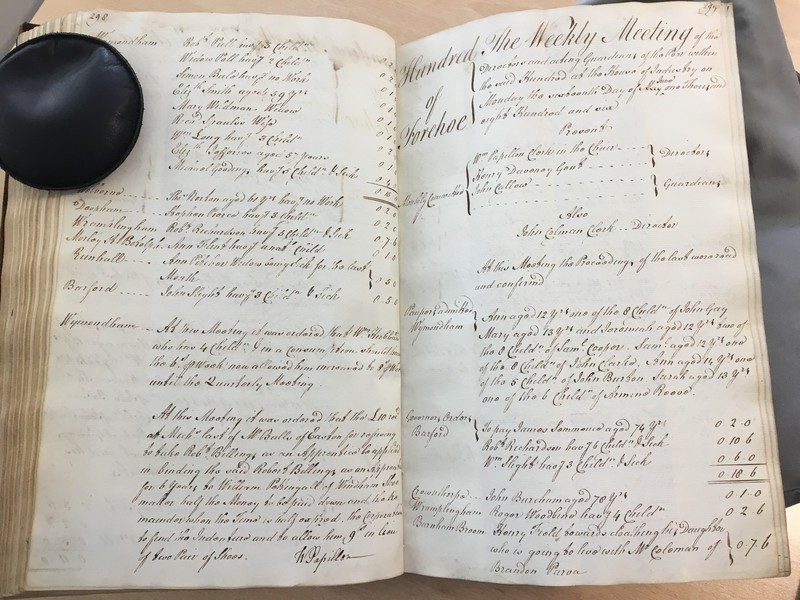 298
Wymondham Rob.t Poll hav.g 3 Child.n
Widow Poll hav.g 2 Child.n
Simon Beales hav.g no Work
Eliz.th Smith aged 59 Y.rs
Mary Wildman Widow
Ric.d Wife
W.m Long hav.g 3 Child.n
Eliz.th Jefferies aged 57 Years
hav.g 5 Child.n & Sick
Tho.s Norton aged 60 Y.rs hav.g no Work
Deopham Stephen Peirce hav.g 3 Child.n 0 2 0
Wramplingham Rob.t Richardson hav.g 5 Child.n & Sick 0 7 6
Morley S.t Botolph Ann Flatt hav.g a nat.l Child 0 1 0
Runhall Ann Widow being Sick for the last
Month } 0 5 0
Barford John Slight hav.g 3 Child.n & Sick 0 5 0
Wymondham At this Meeting it was ordered that W.m
who has 4 Child.n & in a Consumption should have
the 6.s p.r Week now allowed him increased to
until the Quarterly Meeting.
At this Meeting it was ordered that the £10
at Mich.s last of M.r Bulls of Easton for refusing
to take Rob.t Billing as an Apprentice be applied
in binding the said Robert Billing as an Apprentice
for 6 Years to William of Windham Shoe
maker half the Money to be paid down and the re
mainder when the Time is half expired the Corporation
to find the Indenture and to allow him in lieu
of two Pair of Shoes. W Papillon
Hundred of Forehoe } The Weekly Meeting of the
Directors and acting Guardians of the Poor within
the said Hundred at the House of Industry on
Monday the sixteenth Day of June one Thousand
eight Hundred and six
Present
Weekly Committee { W.m Papillon Clerk in the Chair
Henry Daveney Gent } Directors
John Callow } Guardians
Also
John Colman Clerk Director
At this Meeting the Proceedings of the last were read
and confirmed
Paupers admitted
Wymondham { Ann aged 12 Y.rs one of the 8 Child.n of John Gay
Mary aged 13 Y.rs and Jeremiah aged 12 Y.rs two of
the 8 Child.n of Sam.l Cooper. Sam.l aged 12 Y.rs one
of the 8 Child.n of John Clarke. Ann aged 14 Y.rs one
of the 5 Child.n of John Burton. Sarah aged 13 Y.rs
one of the 6 Child.n of Reeve.
Governors Orders
Barford { To pay James Simmons aged 74 Y.rs 0 2 0
Rob.t Richardson hav.g 6 Child.n & Sick 0 10 6
W.m Slight hav.g 3 Child.n & Sick 0 6 0
0 18 6
Crownthorpe John Burcham aged 78 Y.rs 0 1 0
Wramplingham Roger Woodbine hav.g 4 Child.n 0 2 6
Barnham Broom Henry towards cloathing his Daughter
who is going to live with M.r Coleman of } 0 7 6
Brandon Parva